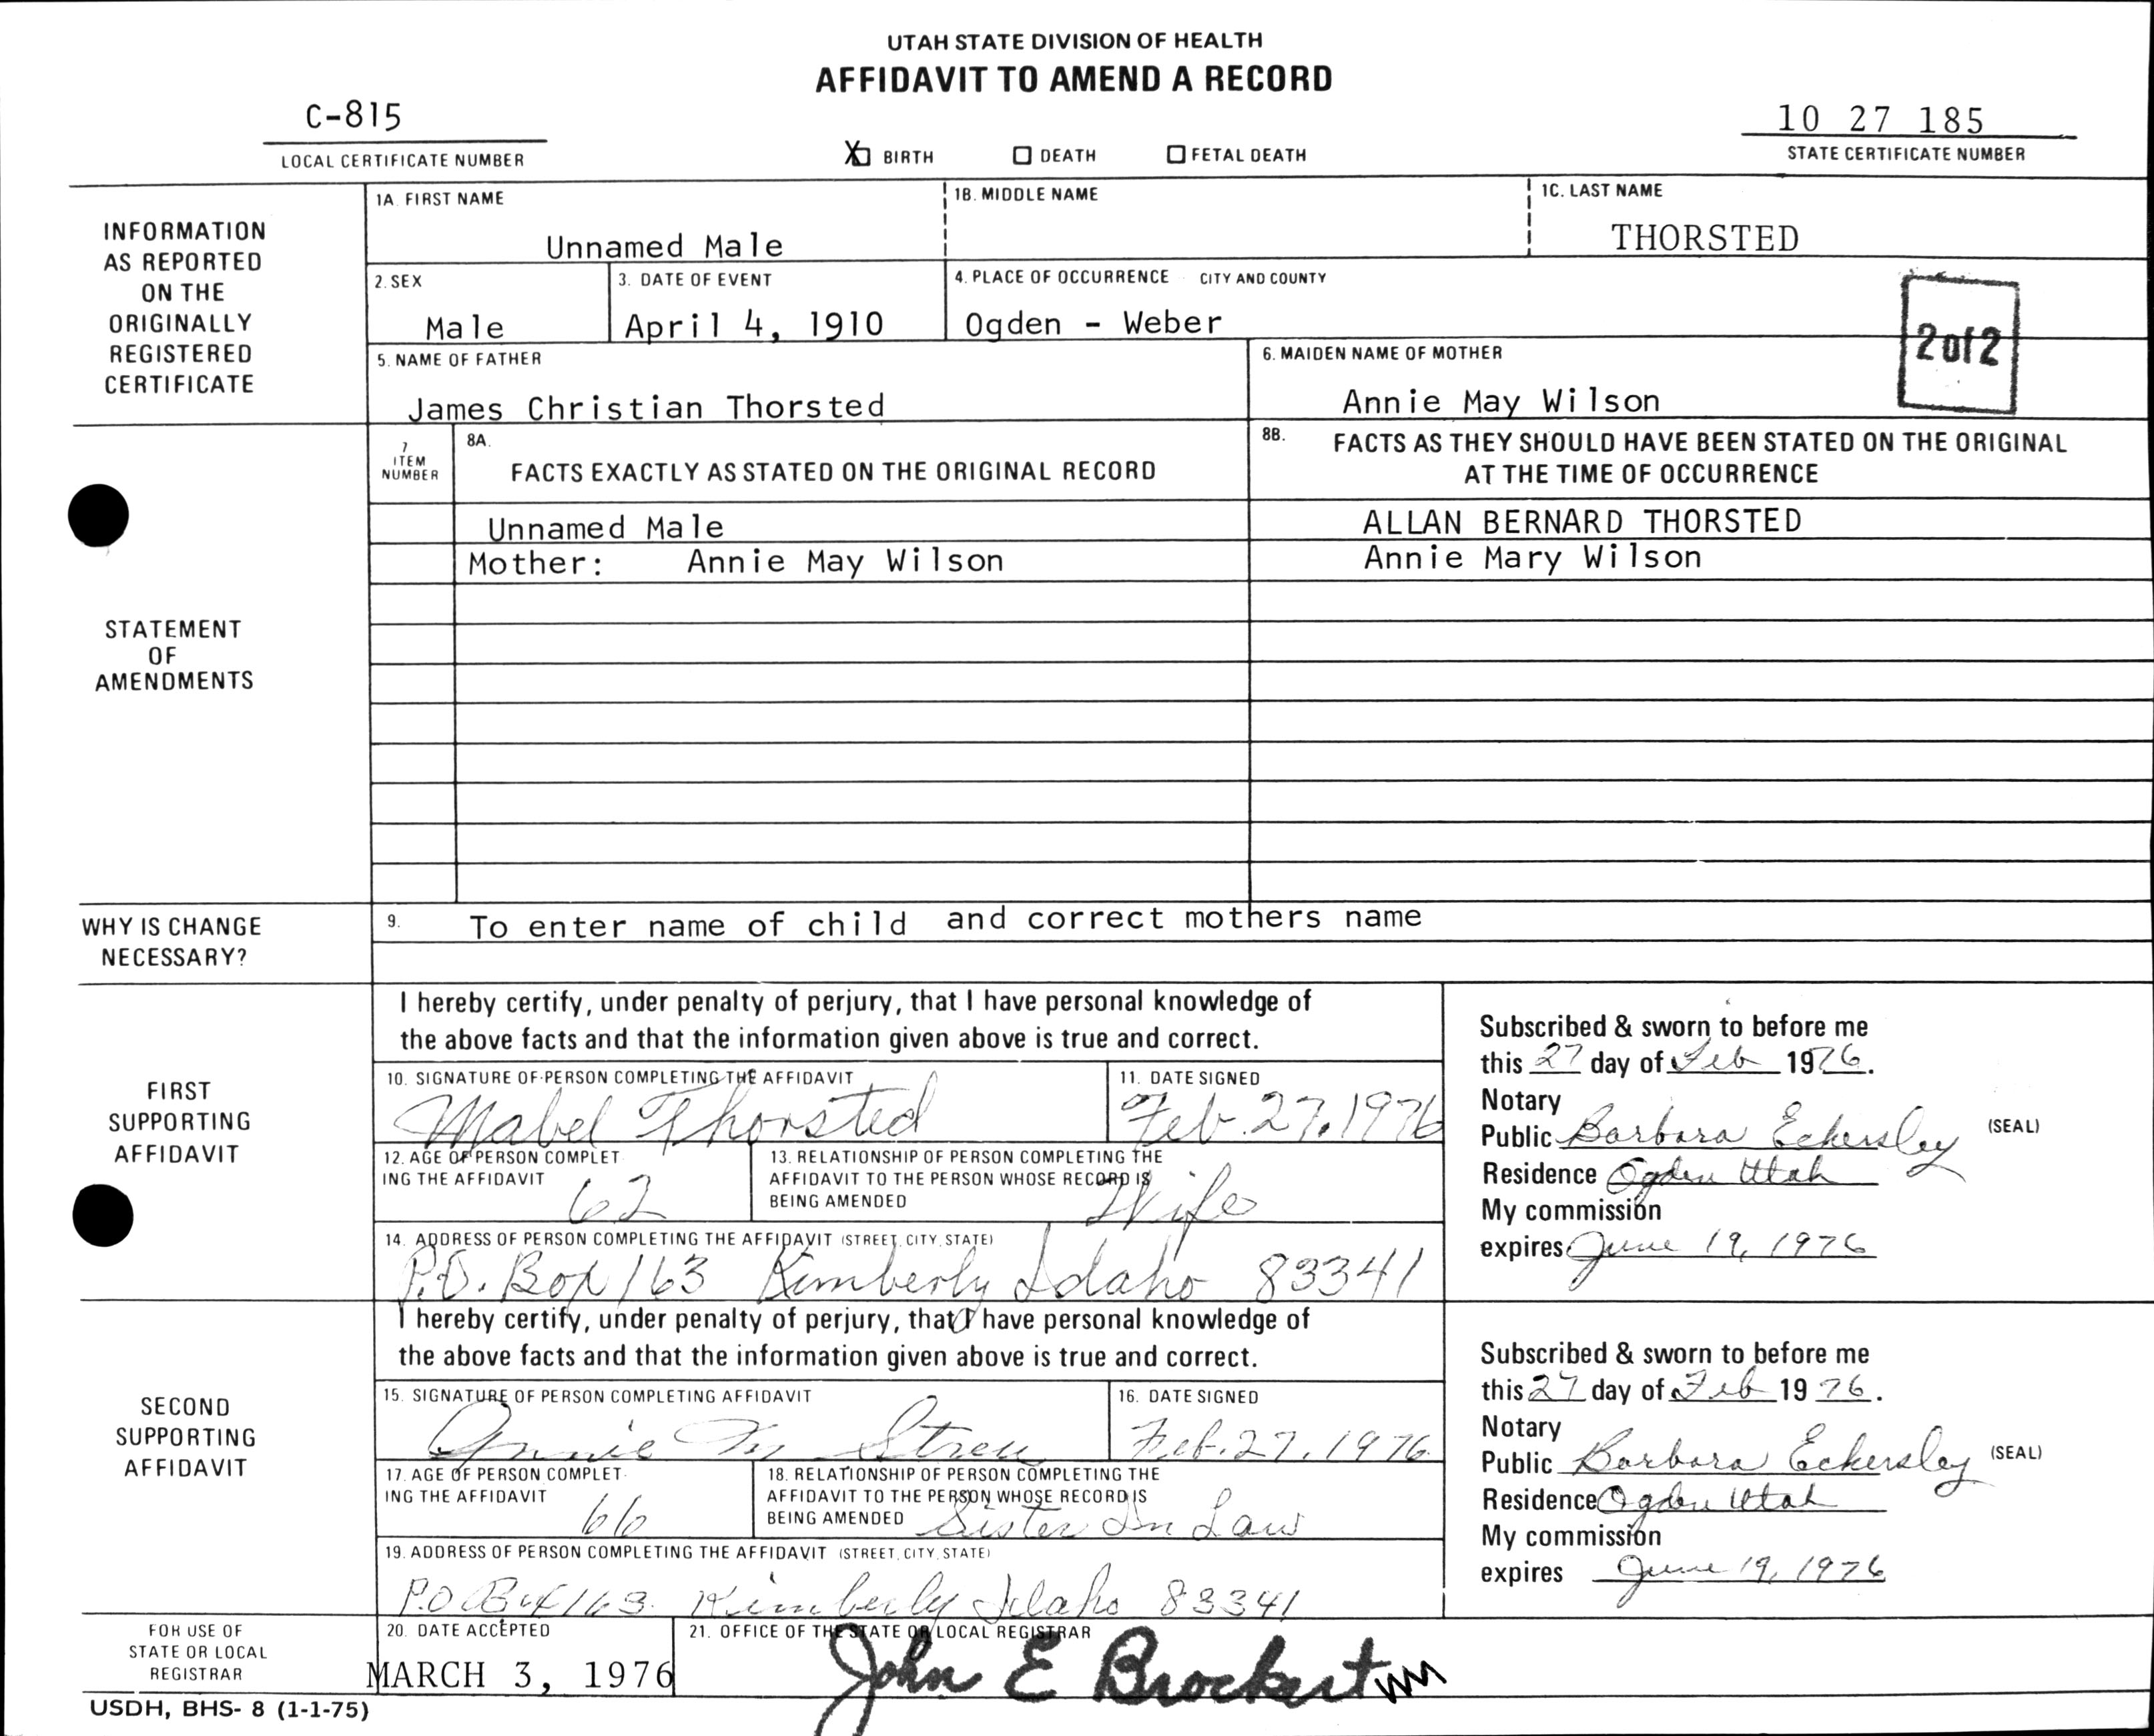 UTAH STATE DIVISION OF HEALTH
AFFIDAVIT TO AMEND A RECORD
C-815
LOCAL CERTIFICATE NUMBER
X BIRTH DEATH FETAL DEATH
10 27 185
STATE CERTIFICATE NUMBER
INFORMATION AS REPORTED ON THE ORIGINALLY REGISTERED CERTIFICATE
1A. FIRST NAME
Unnamed Male
1B. MIDDLE NAME
1C. LAST NAME
THORSTED
2. SEX
Male
3. DATE OF EVENT
April 4, 1910
4. PLACE OF OCCURRENCE CITY AND COUNTY
Ogden - Weber
2 of 2
5. NAME OF FATHER
James Christian Thorsted
6. MAIDEN NAME OF MOTHER
Annie May Wilson
STATEMENT OF AMENDMENTS
7 ITEM NUMBER
8A.
FACTS EXACTLY AS STATED ON THE ORIGINAL RECORD
8B. FACTS AS THEY SHOULD HAVE BEEN STATED ON THE ORIGINAL
AT THE TIME OF OCCURRENCE
Unnamed Male
ALLAN BERNARD THORSTED
Mother: Annie May Wilson
Annie Mary Wilson
WHY IS CHANGE NECESSARY?
9. To enter name of child and correct mothers name
FIRST SUPPORTING AFFIDAVIT
I hereby certify, under penalty of perjury, that I have personal knowledge of
the above facts and that the information given above is true and correct.
10. SIGNATURE OF PERSON COMPLETING THE AFFIDAVIT
Mabel Thorsted
11. DATE SIGNED
Feb. 27, 1976
12. AGE OF PERSON COMPLET
ING THE AFFIDAVIT
62
13. RELATIONSHIP OF PERSON COMPLETING THE
AFFIDAVIT TO THE PERSON WHOSE RECORD IS
BEING AMENDED
Wife
14. ADDRESS OF PERSON COMPLETING THE AFFIDAVIT (STREET, CITY, STATE)
P.O. Box 163 Kimberly Idaho 83341
Subscribed & sworn to before me
this 27 day of Feb 1976.
Notary
Public Barbara Eckersley (SEAL)
Residence Ogden Utah
My commission
expires June 19, 1976
SECOND SUPPORTING AFFIDAVIT
I hereby certify, under penalty of perjury, that I have personal knowledge of
the above facts and that the information given above is true and correct.
15. SIGNATURE OF PERSON COMPLETING AFFIDAVIT
Annie M
16. DATE SIGNED
Feb. 27, 1976
17. AGE OF PERSON COMPLET-
ING THE AFFIDAVIT
66
18. RELATIONSHIP OF PERSON COMPLETING THE
AFFIDAVIT TO THE PERSON WHOSE RECORD IS
BEING AMENDED
Sister In Law
19. ADDRESS OF PERSON COMPLETING THE AFFIDAVIT (STREET, CITY, STATE)
P.O Box 163. Kimberly Idaho 83341
Subscribed & sworn to before me
this 27 day of Feb 1976.
Notary
Public Barbara Eckersley (SEAL)
Residence Ogden Utah
My commission
expires June 19, 1976
FOR USE OF STATE OR LOCAL REGISTRAR
20. DATE ACCEPTED
MARCH 3, 1976
21. OFFICE OF THE STATE OR LOCAL REGISTRAR
John E Brockert
USDH, BHS- 8 (1-1-75)